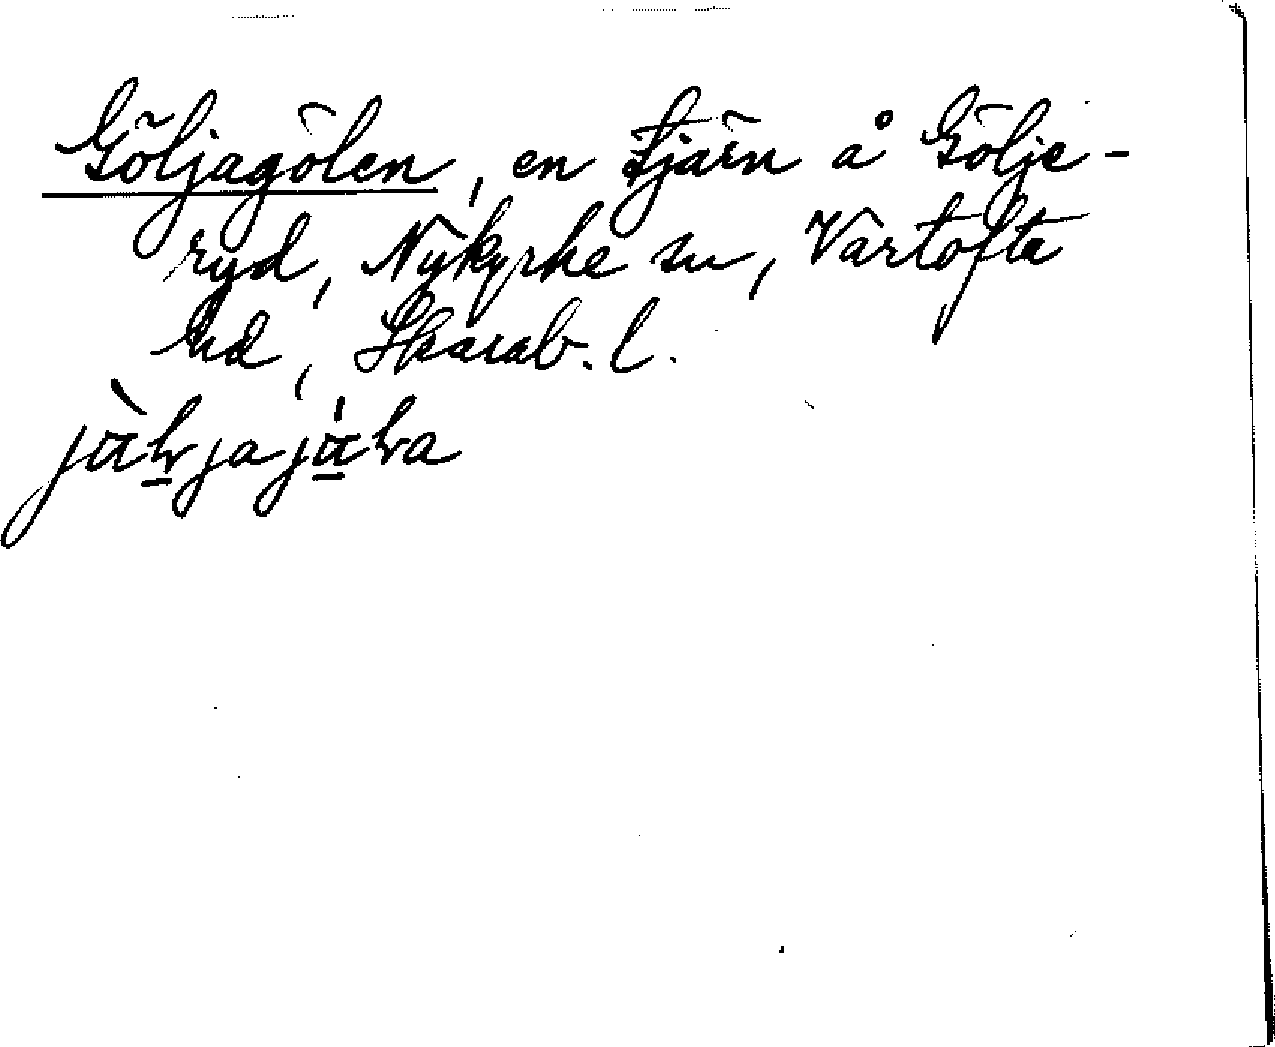 Göljagölen, en tjärn å Gölje-
ryd, Nykyrke sn, Vartofta
hd, Skarab. l.